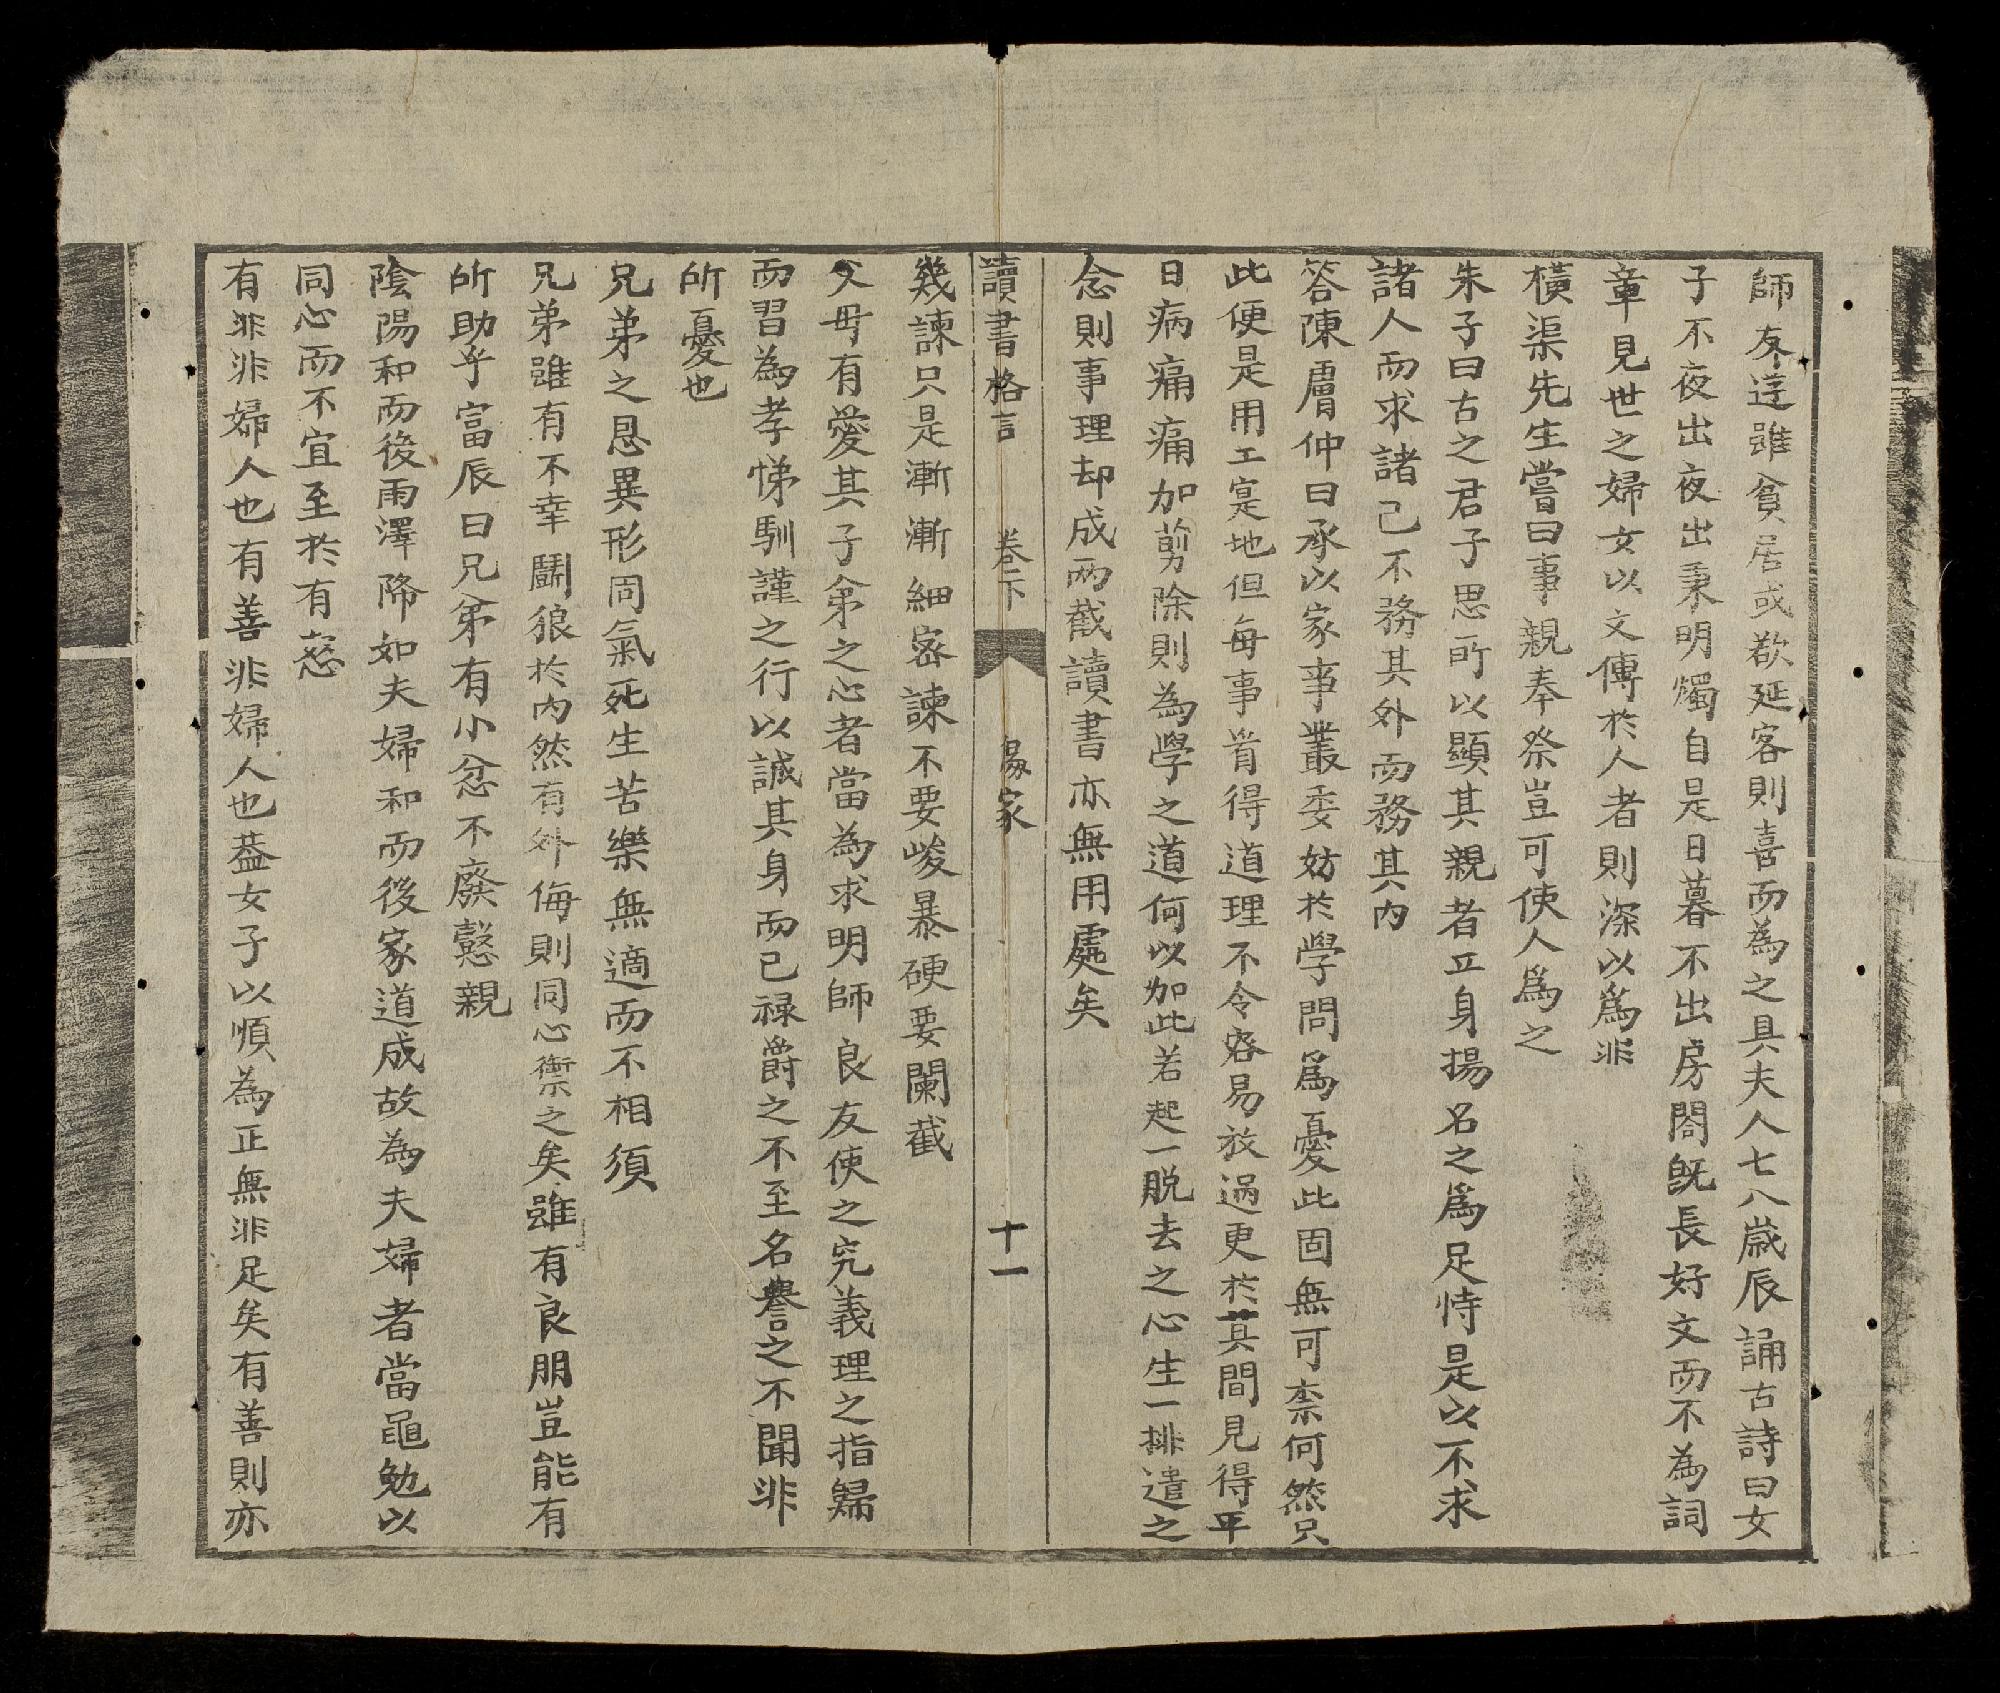 師友遊雖貧居或欲延客則喜而為之具夫人七八歲辰誦古詩曰女
子不夜出夜出秉明燭自是日暮不出房閤旣長好文而不為詞
章見世之婦女以文傳於人者則深以爲非
橫渠先生嘗曰事親奉祭豈可使人爲之
朱子曰古之君子思所以顯其親者立身揚名之爲足恃是以不求
諸人而求諸己不務其外而務其內
答陳膚仲曰承以家事叢委妨於學問爲憂此固無可柰何然只
此便是用工寔地但每事省得道理不令容易放過更於其間見得平
日病痛痛加剪除則為學之道何以加此若起一脱去之心生一排遣之
念則事理却成两截讀書亦無用處矣
讀書格言 卷下 易家 十一
幾諫只是漸漸細密諫不要峻暴硬要闌截
父毋有愛其子弟之心者當為求明師良友使之究義理之指歸
而習為孝悌馴謹之行以誠其身而已禄爵之不至名譽之不聞非
所憂也
兄弟之恩異形同氣死生苦樂無適而不相須
兄弟雖有不幸鬬狼於内然有外侮則同心禦之矣雖有良朋豈能有
所助乎富辰曰兄弟有小忿不廢懿親
陰陽和而後雨澤降如夫婦和而後家道成故為夫婦者當黽勉以
同心而不宜至於有怒
有非非婦人也有善非婦人也蓋女子以順為正無非足矣有善則亦